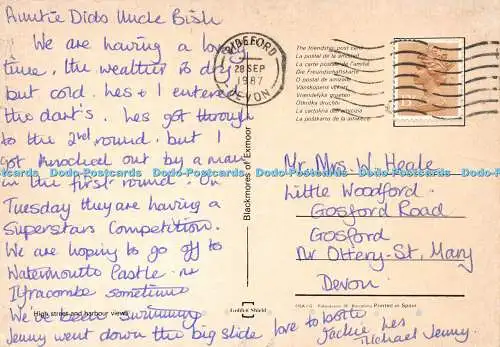 Auntie Dido Uncle Bish
We are having a lovely
time, the weather is dry
but cold. Les + I entered
the dart's. Les got through
to the 2nd round, but I
got knocked out by a man
in the first round. On
Tuesday they are having a
Superstars Competition.
We are hoping to go off to
Watermouth Castle in
Ilfracombe sometime
We've been swimming
Jenny went down the big slide love to both
Jackie Les
Michael Jenny.
High street and harbour views
BIDEFORD
28 SEP
1987
DEVON
The friendship post card
La postal de la amistad
La carte postale de l'amitié
Die Freundschaftskarte
O postal de amizade
Vänskapens vykort
Vriendelyke groeten
La cartolina dell'amicizia
Blackmores of Exmoor
Golden Shield
Printed in Spain
Mr. Mrs. W. Heale
Little Woodford.
Gosford Road
Gosford
Nr Ottery-St. Mary
Devon.
Dodo-Postcards Dodo-Postcards Dodo-Postcards Dodo-Postcards